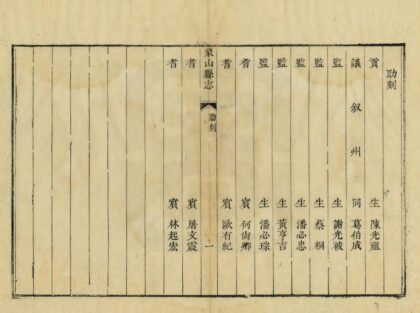 助刻
貢生陳光祖
議叙州同葛伯成
監生謝光被
監生蔡桐
監生潘必忠
監生黃亨吉
監生潘必琮
耆賓何尙卿
耆賓歐有紀
象山縣志
助刻
一
耆賓屠文震
耆賓林起宏